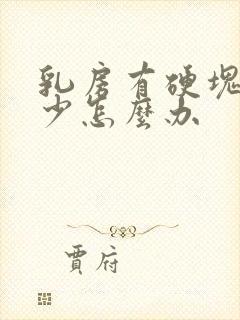 乳房有硬塊
少怎麼办
賈府